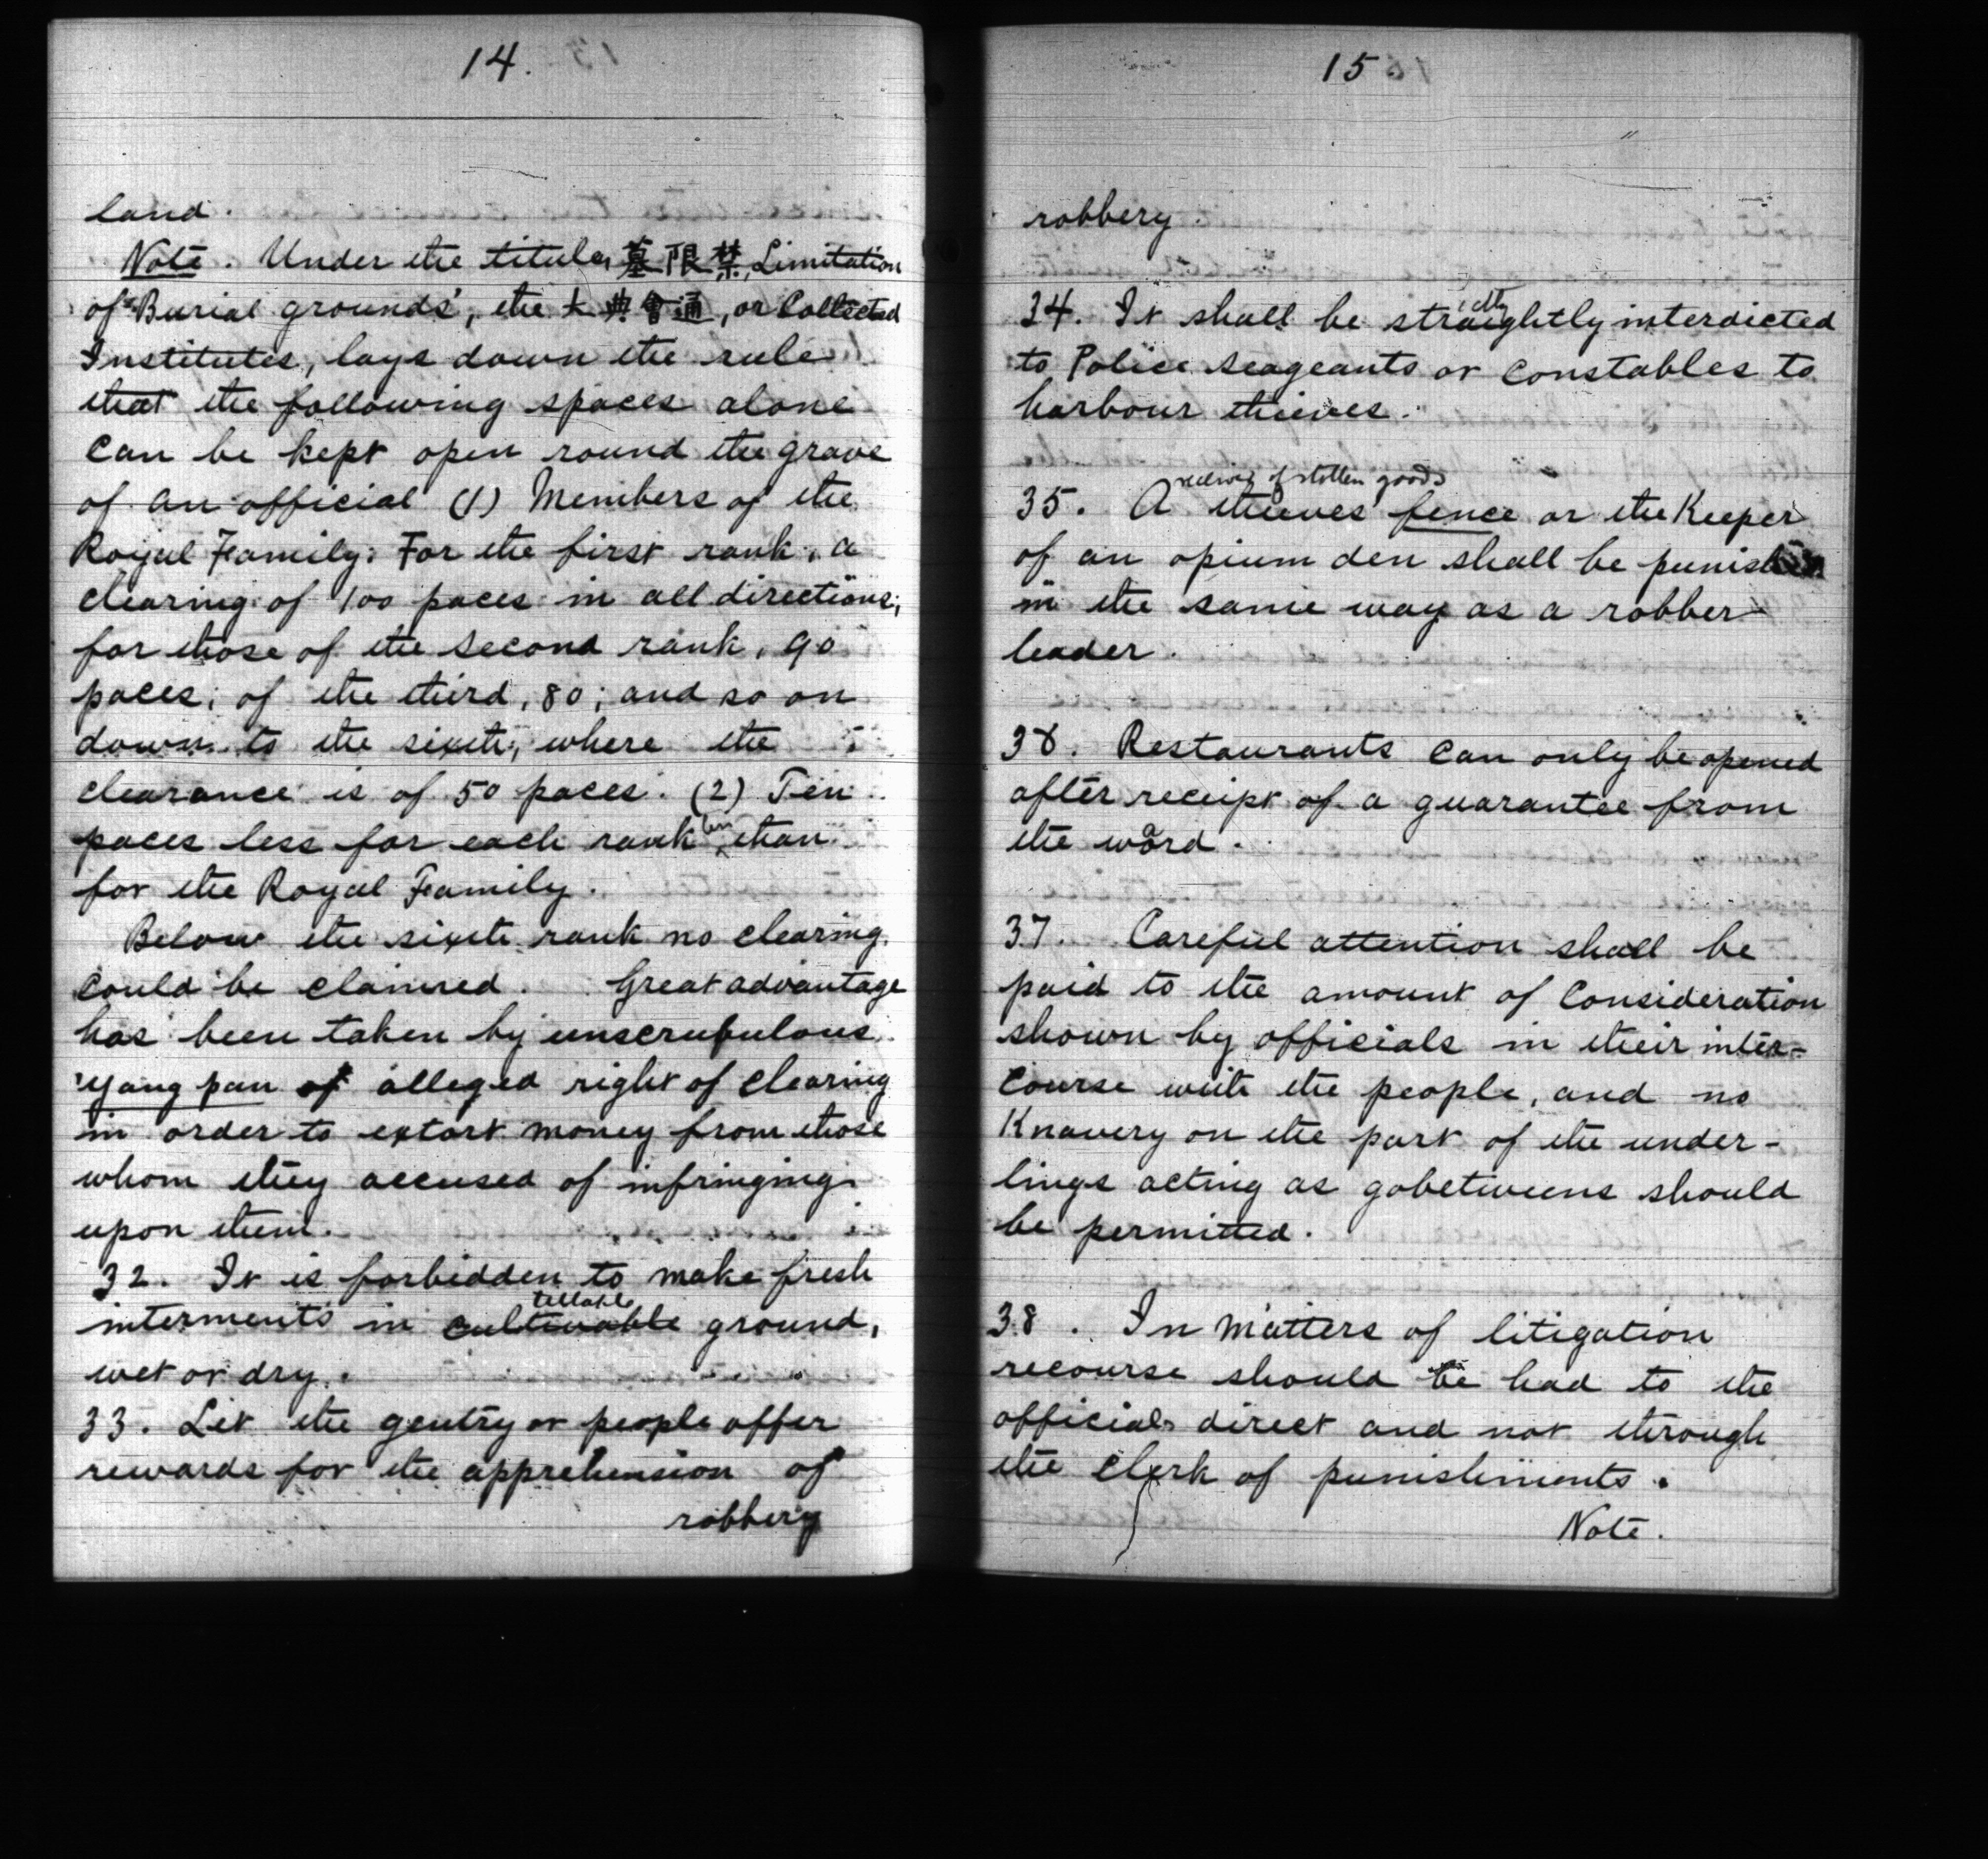 14.
land.
Note. Under the title, 墓限禁, Limitation
of Burial grounds', the 大典會通, or Collected
Institutes, lays down the rule
that the following spaces alone
can be kept open round the grave
of an official (1) Members of the
Royal Family: For the first rank, a
clearing of 100 paces in all directions;
for those of the second rank, 90
paces; of the third, 80; and so on
down to the sixth, where the
clearance is of 50 paces. (2) Ten
paces less for each rank than
for the Royal Family.
Below the sixth rank no clearing
could be claimed. Great advantage
has been taken by unscrupulous
yang pan of alleged right of clearing
in order to extort money from those
whom they accused of infringing
upon them.
32. It is forbidden to make fresh
tillable
interments in cultivable ground,
wet or dry.
33. Let the gentry or people offer
rewards for the apprehension of
robbery
15
robbery.
34. It shall be straightly interdicted
to Police seageants or constables to
harbour thieves.
of stollen goods
35. A thieves' fence or the Keeper
of an opium den shall be punish
in the same way as a robber
leader.
36. Restaurants can only be opened
after receipt of a guarantee from
the ward.
37. Careful attention shall be
paid to the amount of consideration
shown by officials in their inter-
course with the people, and no
Knavery on the part of the under-
lings acting as gobetweens should
be permitted.
38. In matters of litigation
recourse should be had to the
officials direct and not through
the clerk of punishments.
Note.